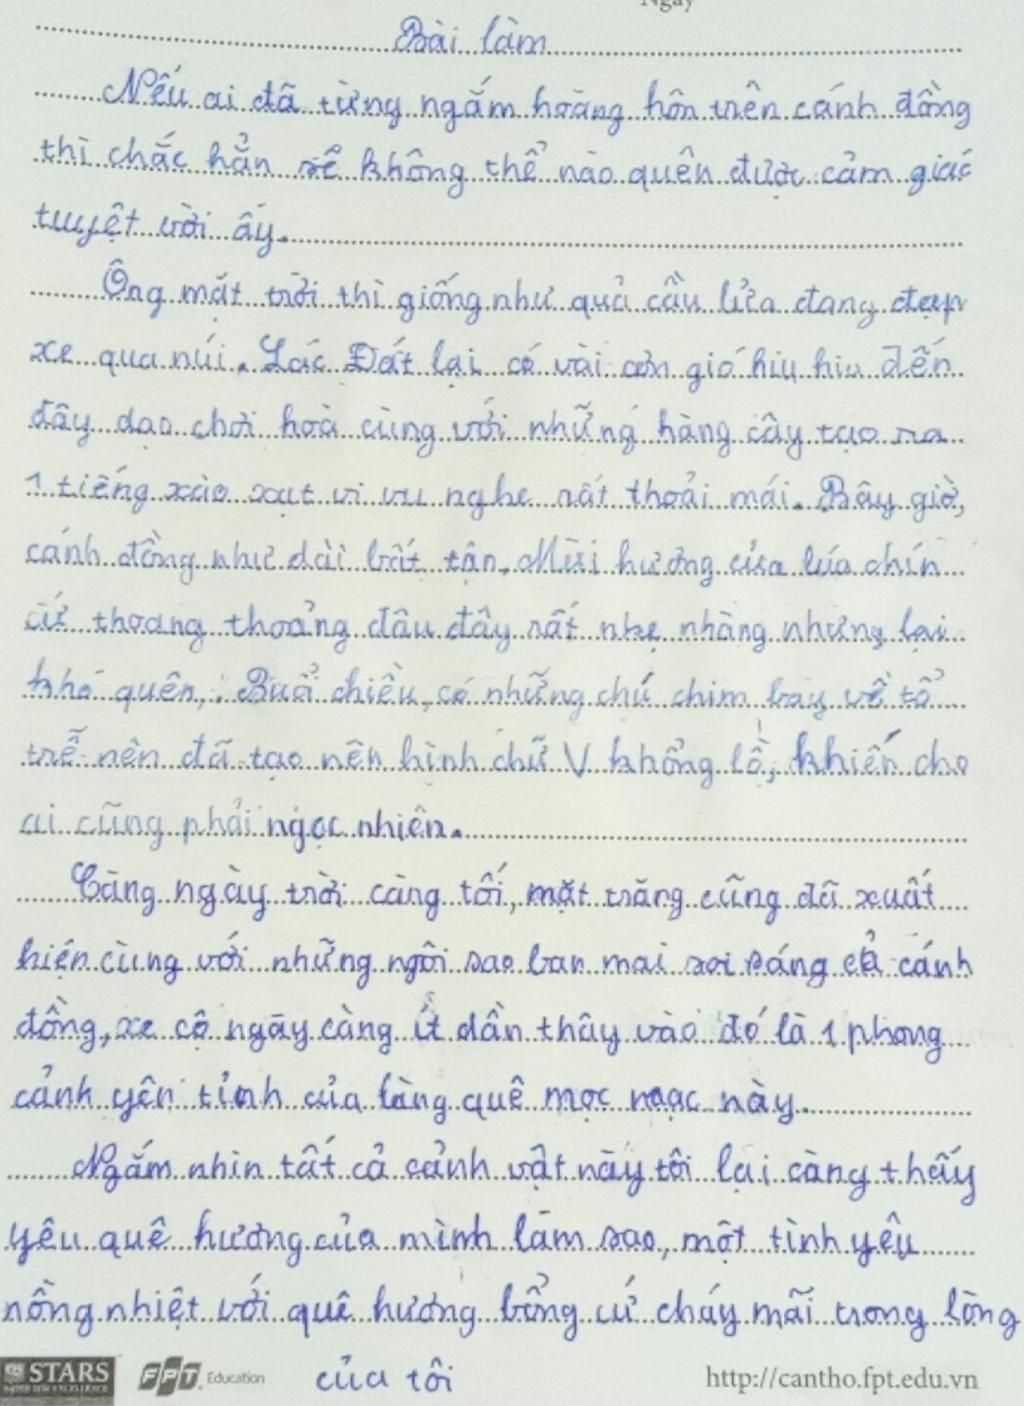 Ngày
Bài làm
Nếu ai đã từng ngắm hoàng hôn trên cánh đồng
thì chắc hẳn sẽ không thể nào quên được cảm giác
tuyệt vời ấy.
Ông mặt trời thì giống như quả cầu lửa đang đạp
xe qua núi. Lác Đát lại có vài cơn gió hiu hiu đến
đây dạo chơi hoà cùng với những hàng cây tạo ra
1 tiếng xào xạt vi vu nghe rất thoải mái. Bây giờ,
cánh đồng như dài bất tận. Mùi hương của lúa chín
cứ thoang thoảng đâu đây rất nhẹ nhàng nhưng lại
khó quên,. Buổi chiều, có những chú chim bay về tổ
trễ nên đã tạo nên hình chữ V khổng lồ, khiến cho
ai cũng phải ngạc nhiên.
Càng ngày trời càng tối, mặt trăng cũng đã xuất
hiện cùng với những ngôi sao ban mai soi sáng cả cánh
đồng, xe cộ ngày càng ít dần thây vào đó là 1 phong
cảnh yên tỉnh của làng quê mọc mạc này.
Ngắm nhìn tất cả cảnh vật này tôi lại càng thấy
yêu quê hương của mình làm sao, một tình yêu
nồng nhiệt với quê hương bổng cứ cháy mãi trong lòng
của tôi
STARS
FPT Education
http://cantho.fpt.edu.vn